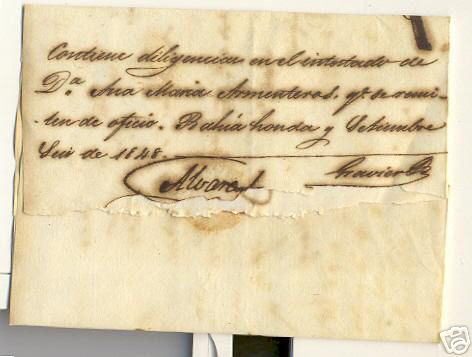 Contiene diligencias en el intestado de
D.a Ana Maria Armenteros. qe. se remi-
-ten de oficio. Bahia honda y Setiembre
Seis de 1848.
Alvarez